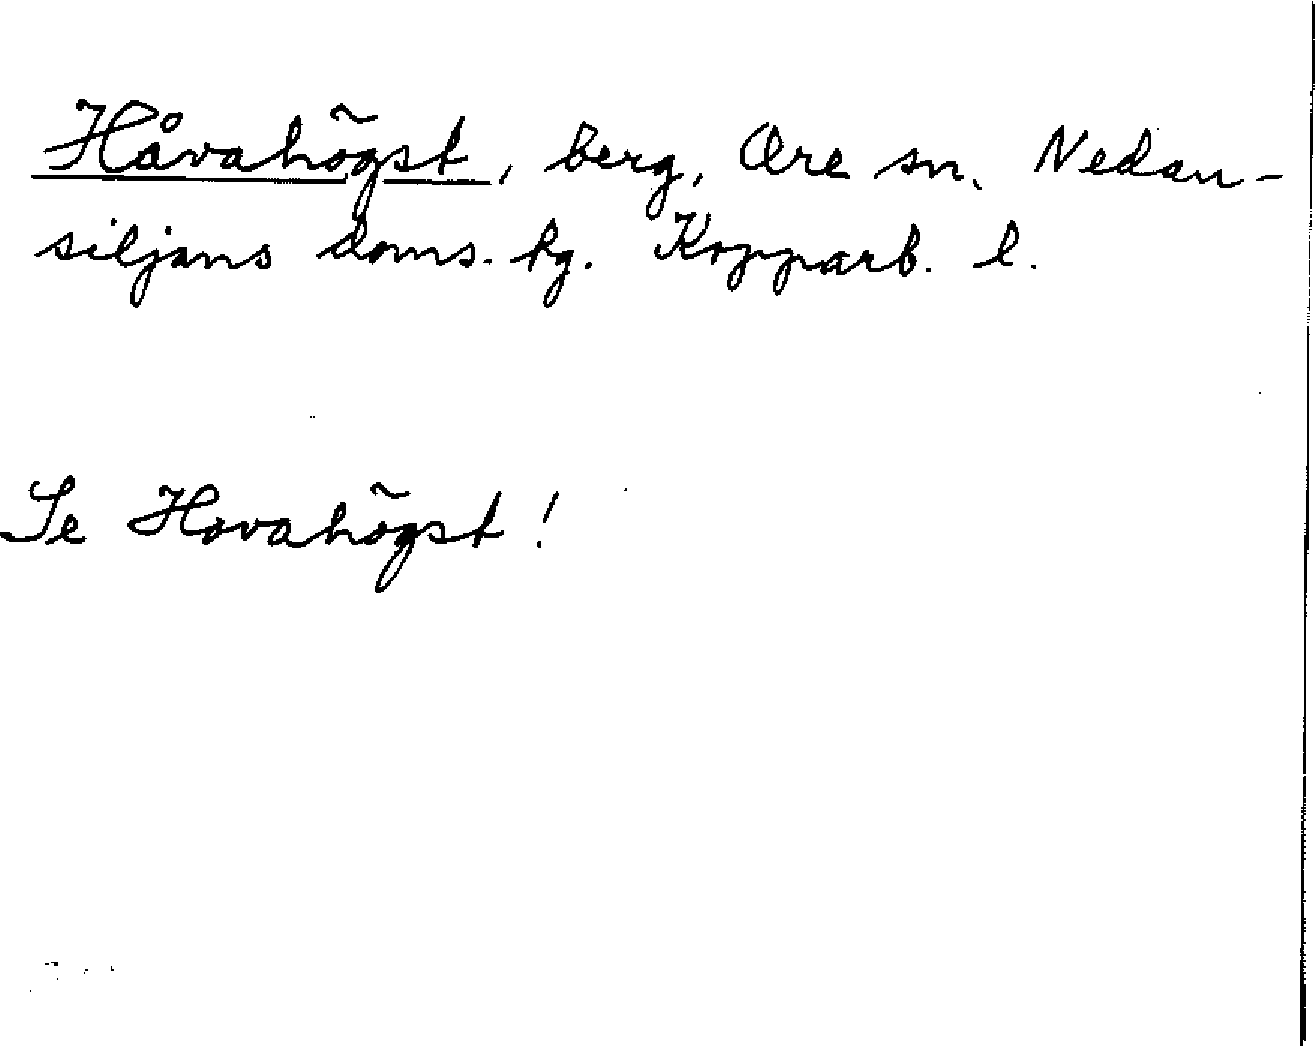 Håvahögst, berg, Ore sn. Nedan-
siljans doms. hg. Kopparb. l.
Se Hovahögst!